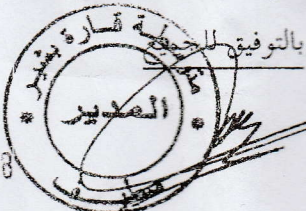 بالتوفيق للجميع
متوسطة قارة بشير
المدير